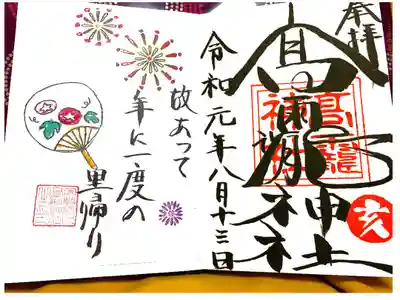 奉拝
高
神社
亥
令和元年八月十三日
故あって
年に一度の
里帰り